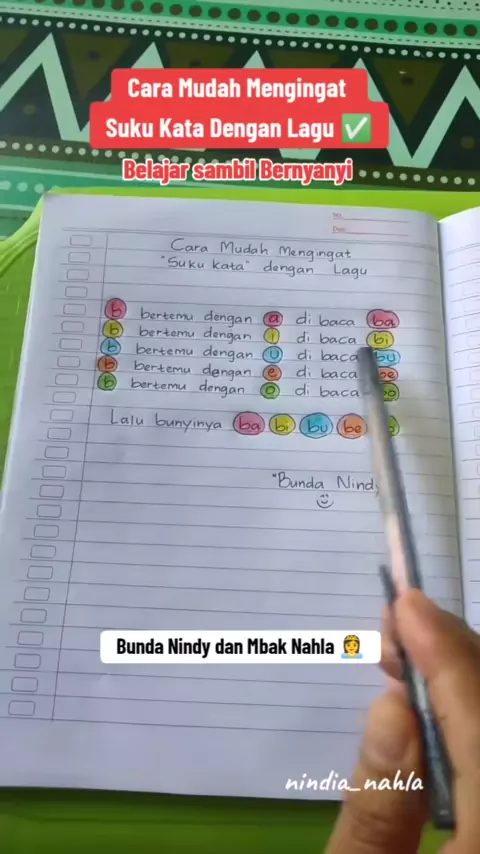 Cara Mudah Mengingat
Suku Kata Dengan Lagu ✅
Belajar sambil Bernyanyi
No.
Date.
Cara Mudah Mengingat
"Suku kata" dengan Lagu
b bertemu dengan a di baca ba
b bertemu dengan i di baca bi
b bertemu dengan u di baca bu
b bertemu dengan e di baca be
b bertemu dengan o di baca bo
Lalu bunyinya ba bi bu be
"Bunda Nindy
Bunda Nindy dan Mbak Nahla 👸
nindia_nahla